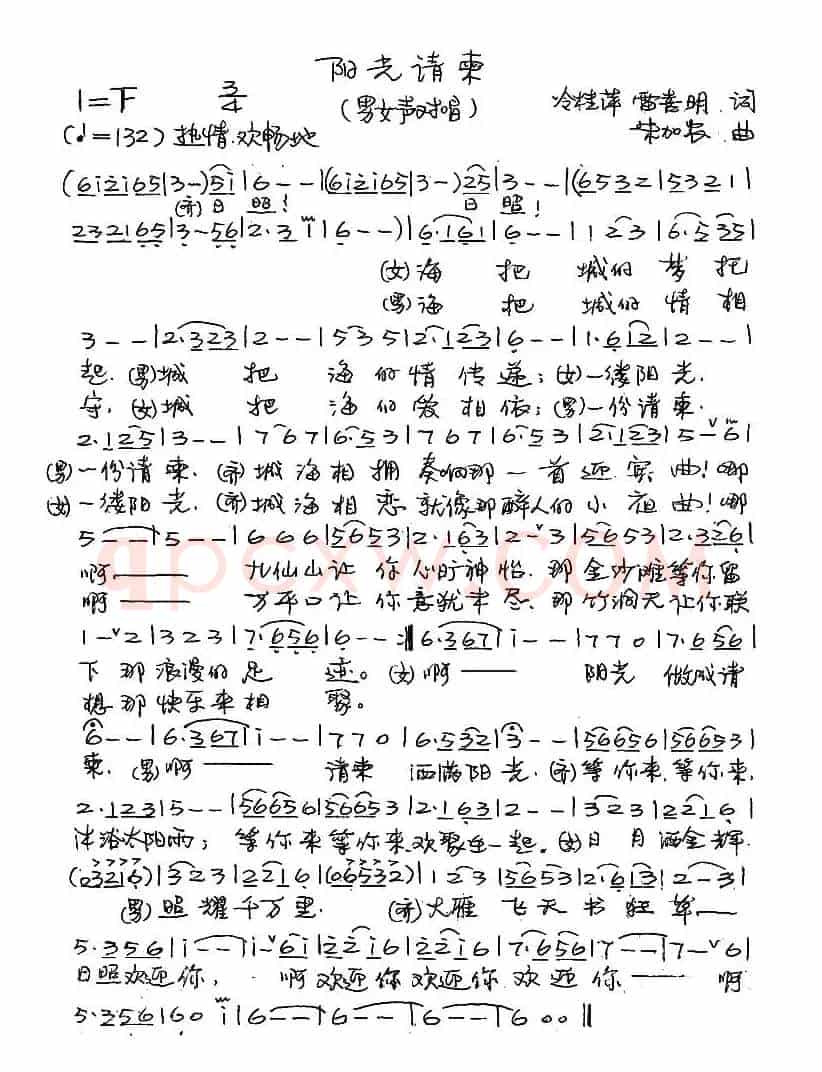 阳光请柬
1=F 3/4 (男女声对唱) 冷桂萍 雷喜明 词
(♩=132) 热情.欢畅地 荣加农 曲
(6i2i65|3-)5i|6--|(6i2i65|3-)25|3--|(6532|5321|
(齐)日 照! 日 照!
232165|3-56|2.3 i|6--)|6.161|6--|123|6.535|
(女)海 把 城的 梦 托
(男)海 把 城的 情 相
3--|2.323|2--|535|2.123|6--|1.612|2--|
起.(男)城 把 海的情 传递;(女)一缕阳光.
守.(女)城 把 海的爱 相依;(男)一份请柬.
2.125|3--|767|6.53|767|6.53|2.123|5-ˇ6|
(男)一份请柬.(齐)城海相拥 奏响那一首迎宾曲!哪
(女)一缕阳光.(齐)城海相恋 就像那醉人的小夜曲!哪
5--|5--|666|5653|2.163|2-ˇ3|5653|2.326|
啊—— 九仙山让你心旷神怡.那金沙滩等你留
啊—— 万平口让你意犹未尽.那竹洞天让你联
1-ˇ2|323|7.656|6--:‖6.367|i--|770|7.656|
下那浪漫的足 迹。(女)啊—— 阳光 做成请
想那快乐来相 聚。
6--|6.367|i--|770|6.532|3--|56656|566531|
柬.(男)啊—— 请柬 洒满阳光.(齐)等你来,等你来,
2.123|5--|56656|56653|2.163|2--|323|2216|
沐浴太阳雨; 等你来等你来欢聚在一起。(女)日 月 洒金辉
(03216)|323|2216|(06532)|123|5653|2.613|2-3|
(男)照 耀千万里. (齐)大雁 飞天书狂草—
5.356|i--|i-ˇ6i|22i6|22i6|7.656|7--|7-ˇ6|
日照欢迎你, 啊欢迎你欢迎你欢迎你—— 啊
5.356|60 i|6--|6--|6--|600‖